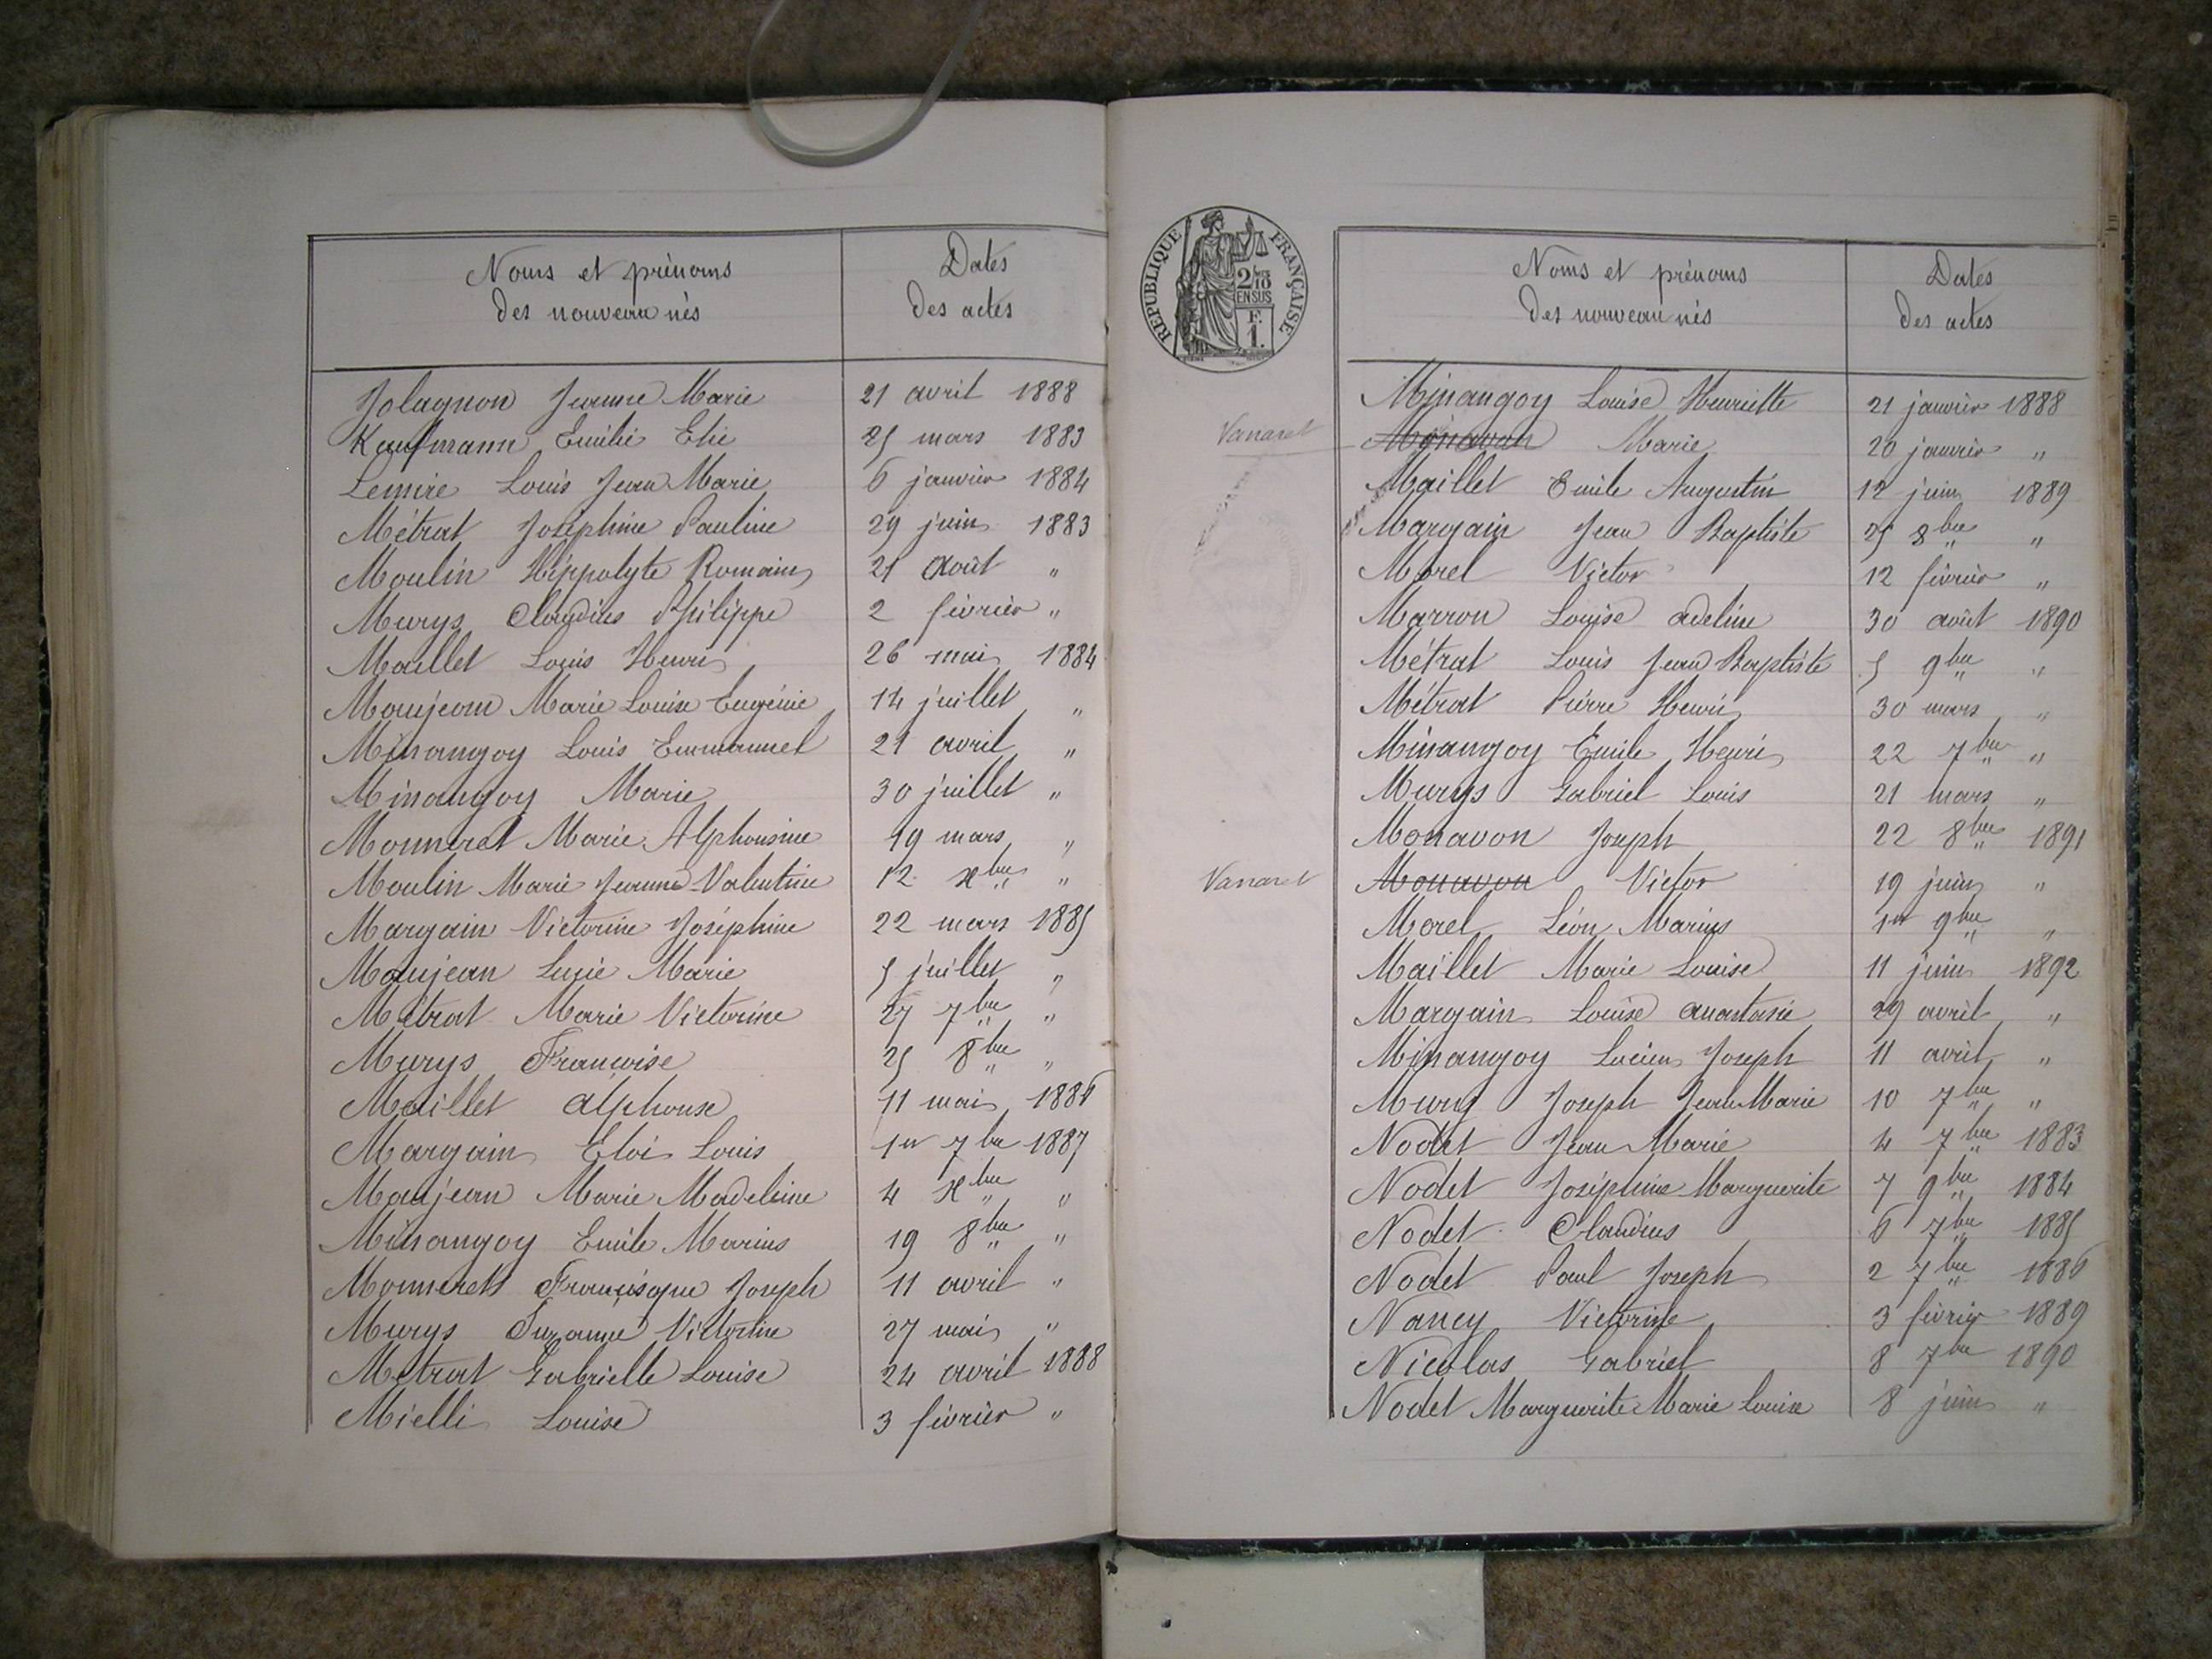 Noms et prénoms
des nouveau nés
Dates
des actes
Jolagnon Jeanne Marie 21 avril 1888
Kaufmann Emilie Elie 25 mars 1883
Lemire Louis Jean Marie 6 janvier 1884
Métrat Joséphine Pauline 29 juin 1883
Moulin Hippolyte Romain 21 août "
Murys Claudius Philippe 2 février "
Maillet Louis Henri 26 mai 1884
Maujean Marie Louise Eugénie 14 juillet "
Minangoy Louis Emmanuel 21 avril "
Minangoy Marie 30 juillet "
Monneret Marie Alphonsine 19 mars "
Moulin Marie Jeanne Valentine 12 xbre "
Margain Victorine Joséphine 22 mars 1885
Maujean Lucie Marie 5 juillet "
Métrat Marie Victorine 27 7bre "
Murys Françoise 25 8bre "
Maillet Alphonse 11 mai 1886
Margain Eloi Louis 1er 7bre 1887
Maujean Marie Madeleine 4 xbre "
Minangoy Emile Marius 19 8bre "
Monneret Francisque Joseph 11 avril "
Murys Suzanne Victorine 27 mai "
Métrat Gabrielle Louise 24 avril 1888
Mielli Louise 3 février "
REPUBLIQUE FRANÇAISE
2/10
EN SUS
F.
1.
Noms et prénoms
des nouveau nés
Dates
des actes
Minangoy Louise Henriette 21 janvier 1888
Vanaret Monavon Marie 20 janvier "
Maillet Emile Augustin 12 juin 1889
Margain Jean Baptiste 25 8bre "
Morel Victor 12 février "
Marron Louise adeline 30 août 1890
Métrat Louis Jean Baptiste 5 9bre "
Métrat Pierre Henri 30 mars "
Minangoy Emile Henri 22 7bre "
Murys Gabriel Louis 21 mars "
Monavon Joseph 22 8bre 1891
Vanaret Monavon Victor 19 juin "
Morel Léon Marius 1er 9bre "
Maillet Marie Louise 11 juin 1892
Margain Louise anastasie 29 avril "
Minangoy Lucien Joseph 11 avril "
Murys Joseph Jean Marie 10 7bre "
Nodet Jean Marie 4 7bre 1883
Nodet Joséphine Marguerite 7 9bre 1884
Nodet Claudius 6 7bre 1885
Nodet Paul Joseph 2 7bre 1886
Nancy Victorine 3 février 1889
Nicolas Gabriel 8 7bre 1890
Nodet Marguerite Marie Louise 8 juin "